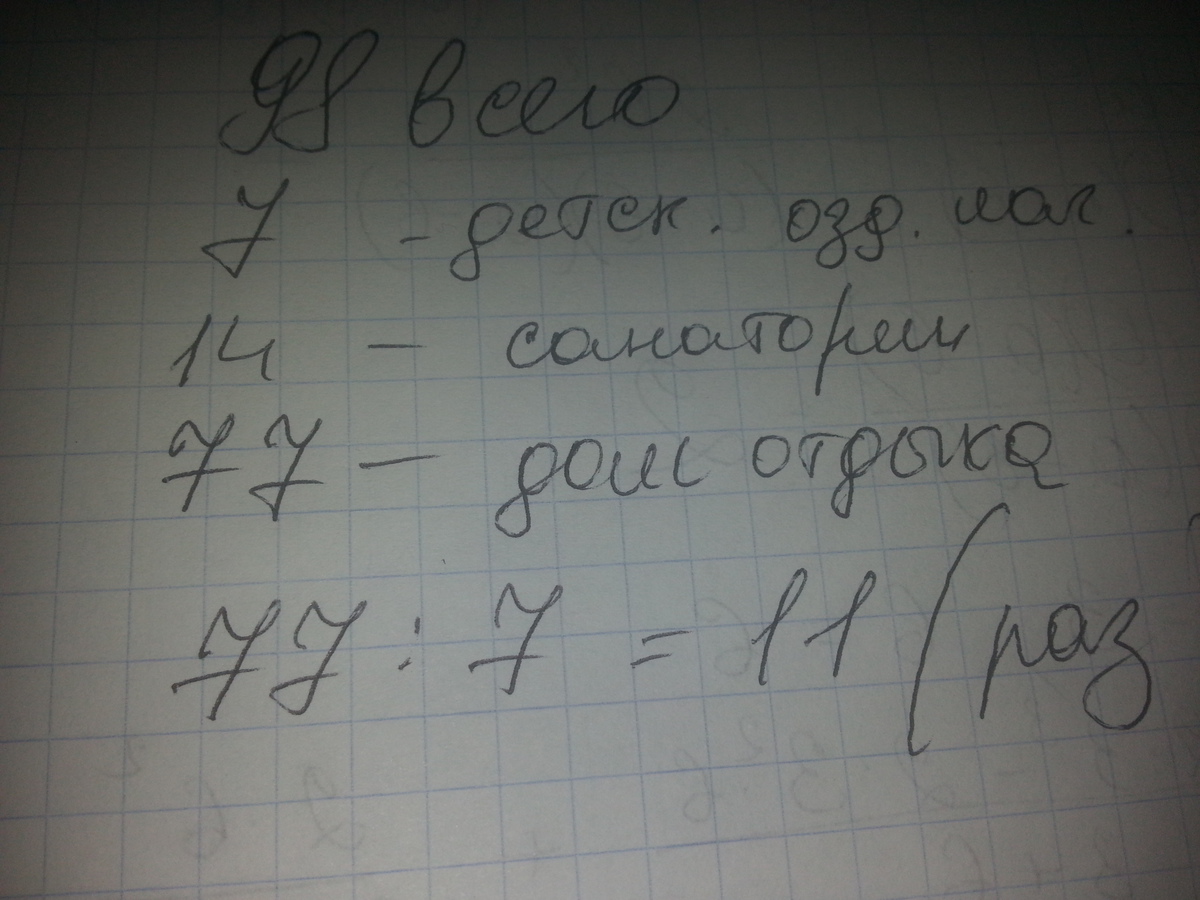 98 всего
7 - детск. озд. лаг.
14 - санатории
77 - дом отдыха
77 : 7 = 11 (раз